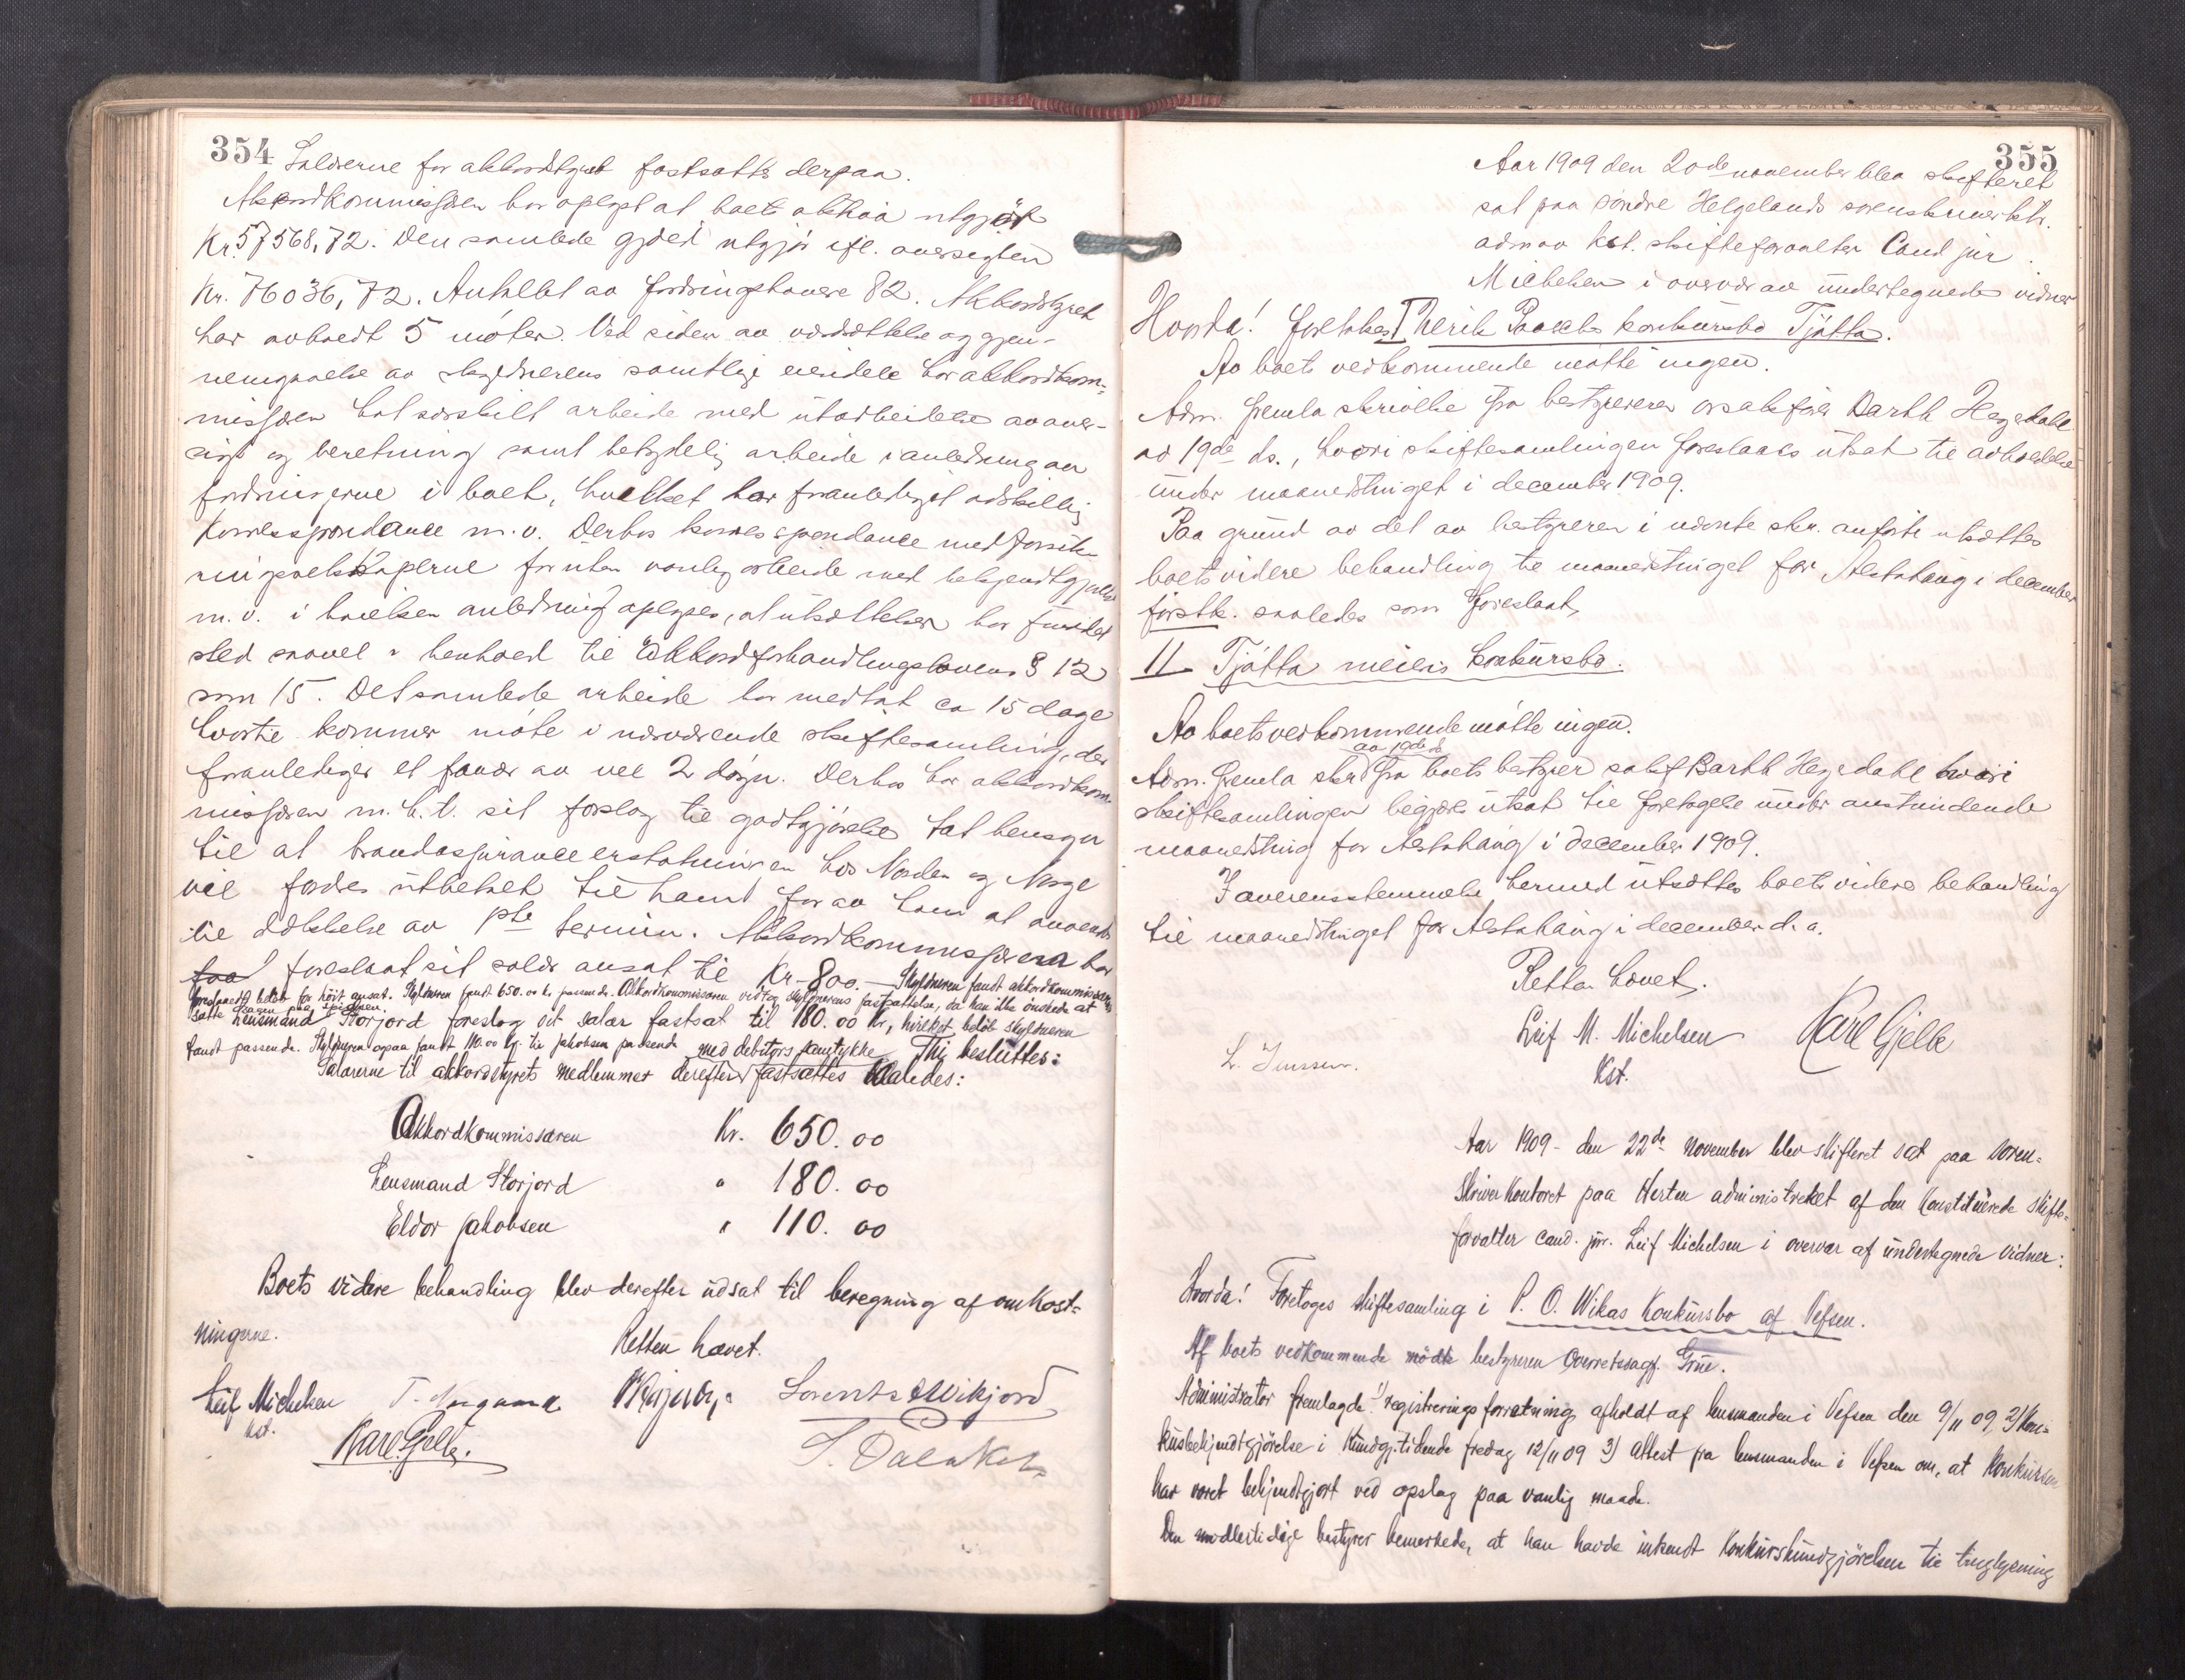 354
Salærerne for akkordstyret fastsattes derpaa.
Akkordkommissæren har oplyst at boets aktiva utgjør
Kr. 57568,72. Den samlede gjæld utgjør ifl. oversigten
Kr. 76036,72. Antallet av fordringshavere 82. Akkordstyret
har avholdt 5 møter. Ved siden av værdsættelse og gjen-
nemgaaelse av skyldnerens samtlige eiendele har akkordkom-
missæren hat særskilt arbeide med utarbeidelse av over-
sigt og beretning samt betydelig arbeide i anledning av
fordringerne i boet, hvilket har foranlediget adskillig
Korrespondance m.v. Derhos korrespondance med forsik-
ringsselskaperne foruten vanlig arbeide med bekjendtgjørelse
m.v. i hvilken anledning oplyses, at utsættelser har fundet
sted saavel i henhold til Akkordforhandlingslovens § 12
som 15. Det samlede arbeide har medtat ca 15 dage
hvortil kommer møte i nærværende skiftesamling, der
foranlediger et fravær av vel 2 døgn. Derhos har akkordkom-
missæren m.h.t. sit forslag til godtgjørelse tat hensyn
til at brandassuranceerstatningen hos Norden og Norge
vil fordres utbetalt til ham for av ham at anvendes
til dækkelse av 1ste termin. Akkordkommissæren har
faa foreslaat sit salær ansat til Kr. 800.— Skyldneren fandt akkordkommissærens
foreslaaede beløb for høit ansat. Skyldneren fandt 650.00 kr. passende. Akkordkommissæren vedtog skyldnerens fastsættelse, da han ikke ønskede at
sætte sagen paa spidsen.
Lensmand Storjord foreslog sit salær fastsat til 180.00 kr, hvilket beløb skyldneren
fandt passende. Skyldneren ogsaa fandt 110.00 kr. til Jakobsen passende. Thi besluttes:
med debitors samtykke
Salærerne til akkordstyrets medlemmer derefter fastsættes saaledes:
Akkordkommissæren Kr. 650.00
Lensmand Storjord " 180.00
Eldor Jakobsen " 110.00
Boets videre behandling blev derefter udsat til beregning af omkost-
ningerne.
Retten hævet.
Leif Michelsen Lorents Wikjord
kst.
Karl Gjelle.
355
Aar 1909 den 20de november blev skifteret
sat paa søndre Helgelands sorenskriverktr.
adm av kst. skifteforvalter Cand jur.
Michelsen i overvær av undertegnede vidner
Hvorda! foretokes I Therik Paasches konkursbo Tjøtta.
Av boets vedkommende møtte ingen.
Adm. fremla skrivelse fra bestyreren o.r.sakfører Barth Hegedahl
av 19de ds., hvori skiftesamlingen foreslaaes utsat til avholdelse
under maanedstinget i december 1909.
Paa grund av det av bestyreren i nævnte skr. anførte utsættes
boets videre behandling til maanedstinget for Alstahaug i december
førstk. saaledes som foreslaat.
II Tjøtta meieris konkursbo.
Av boets vedkommende møtte ingen.
av 19de ds
Adm. fremla skr fra boets bestyrer sakf Barth Hegedahl hvori
skiftesamlingen begjæres utsat til foretagelse under anstundende
maanedsting for Alstahaug i december 1909.
I overensstemmelse hermed utsættes boets videre behandling
til maanedstinget for Alstahaug i december d.a.
Retten hævet.
Leif M. Michelsen Karl Gjelle
Kst.
L. Jenssen.
Aar 1909 - den 22de November blev skifteret sat paa Soren-
skriverkontoret paa Herten administreret af den konstituerede skifte-
forvalter cand. jur. Leif Michelsen i overvær af undertegnede vidner:
Hvorda! Foretoges skiftesamling i P. O. Wikas Konkursbo af Vefsen.
Af boets vedkommende mødte bestyreren Overretssagf. Grue.
Administrator fremlagde 1) registreringsforretning afholdt af lensmanden i Vefsen den 9/11 09, 2) Kon-
kursbekjendtgjørelse i Kundgj.tidende fredag 12/11 09 3) Attest fra lensmanden i Vefsen om, at Konkursen
har været bekjendtgjort ved opslag paa vanlig maade.
Den midlertidige bestyrer bemerkede, at han havde indsendt Konkurskundgjørelsen til tinglysning